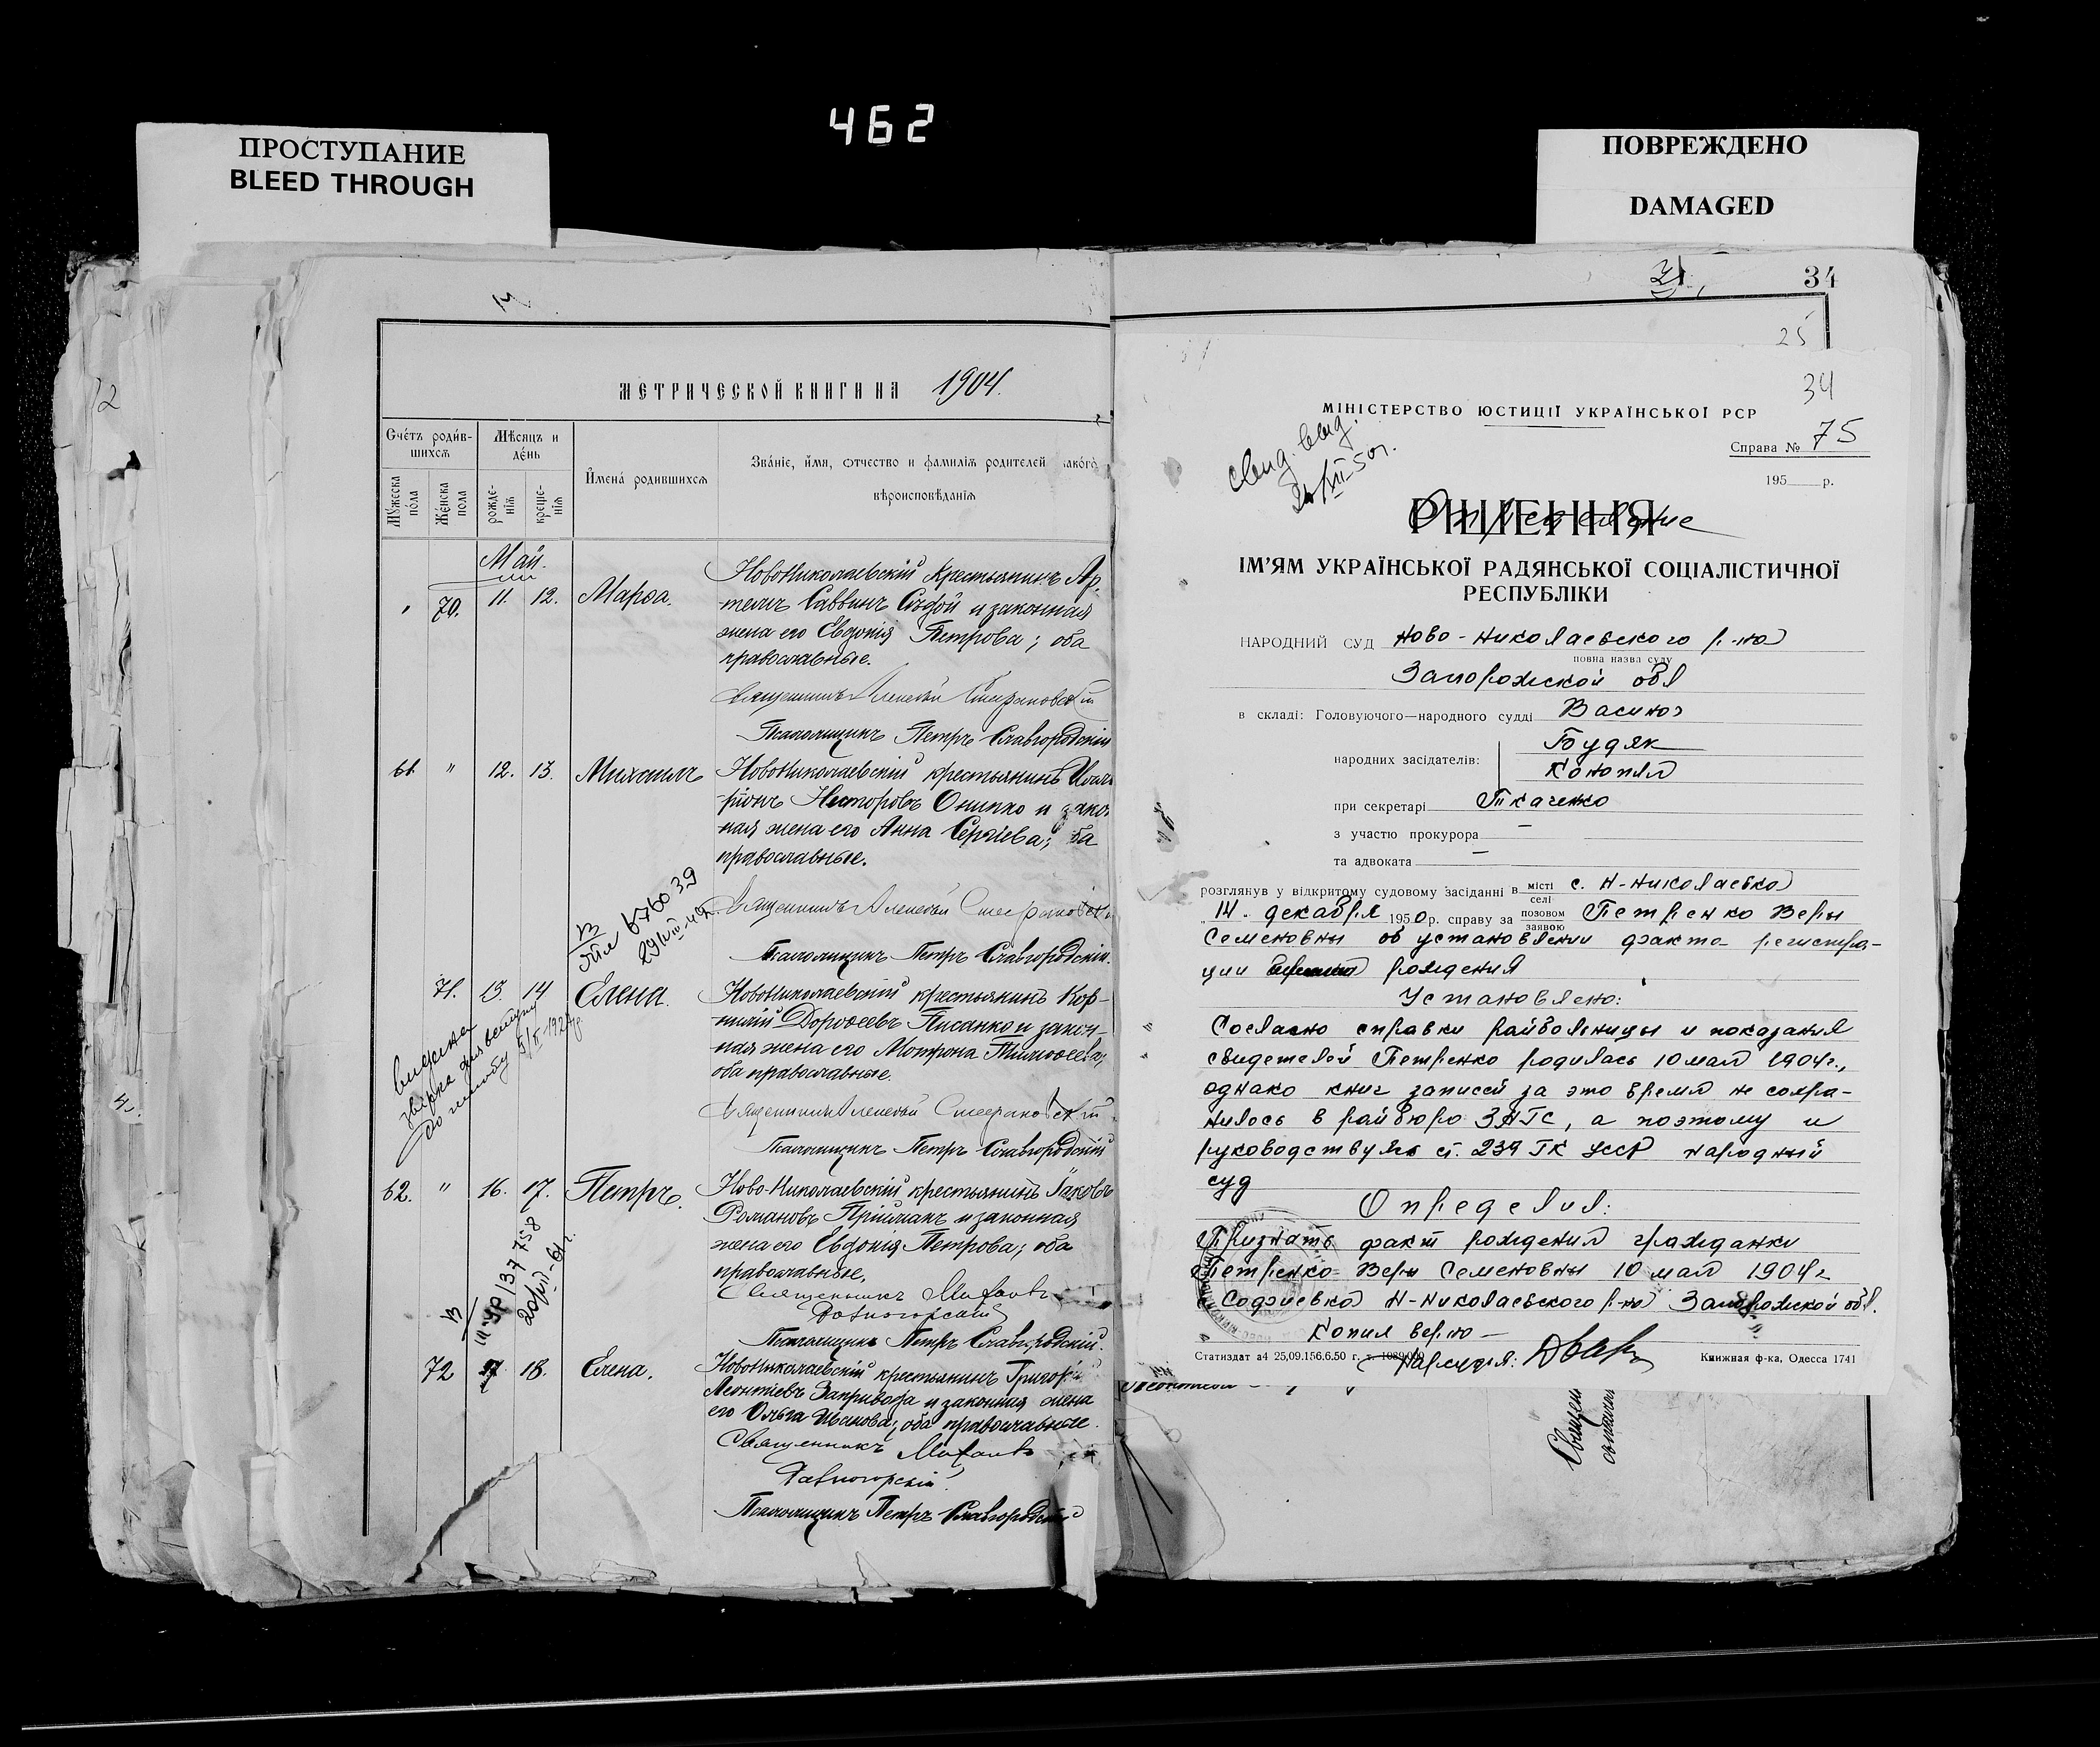 462
ПРОСТУПАНИЕ
BLEED THROUGH
ПОВРЕЖДЕНО
DAMAGED
12
МЕТРИЧЕСКОЙ КНИГИ НА 1904.
Счетъ родившихся
Мужеска пола
Женска пола
Мѣсяцъ и день
рожденія
крещенія
Имена родившихся
Званіе, имя, отчество и фамилія родителей
вѣроисповѣданія
Май.
70. 11. 12. Марѳа.
Новониколаевскій крестьянинъ Ар-
темъ Саввинъ и законная
жена его Евдокія Петрова; оба
православные.
Священникъ Алексѣй
Псаломщикъ Петръ Славгородскій
61. " 12. 13. Михаилъ
Новониколаевскій крестьянинъ
Несторовъ Онипко и
ная жена его Анна Сергіева;
православные.
Священникъ Алексѣй
Псаломщикъ Петръ Славгородскій.
71. 13. 14 Елена.
Новониколаевскій крестьянинъ Кор-
нилій Дороѳеевъ Писанко и закон-
ная жена его Мотрона Тимоѳеева;
оба православные.
Священникъ Алексѣй
Псаломщикъ Петръ Славгородскій
62. " 16. 17. Петръ.
Ново-Николаевскій крестьянинъ Іаковъ
Романовъ Прійманъ и законная
жена его Евдокія Петрова; оба
православные.
Священникъ Михаилъ
Равногорскій
Псаломщикъ Петръ Славгородскій.
72 17. 18. Елена.
Новониколаевскій крестьянинъ Григорій
Леонтіевъ Запривода и законная жена
его Ольга Иванова; оба православные.
Священникъ Михаилъ
Равногорскій.
Псаломщикъ Петръ Славгородскій
34
25
34
МІНІСТЕРСТВО ЮСТИЦІЇ УКРАЇНСЬКОЇ РСР
Справа № 75
195 р.
РІШЕННЯ
Определение
ІМ'ЯМ УКРАЇНСЬКОЇ РАДЯНСЬКОЇ СОЦІАЛІСТИЧНОЇ
РЕСПУБЛІКИ
НАРОДНИЙ СУД Ново-Николаевского р-на
повна назва суду
Запорожской обл
в складі: Головуючого—народного судді Васина
Будяк
народних засідателів:
Конопля
при секретарі Ткаченко
з участю прокурора —
та адвоката —
розглянув у відкритому судовому засіданні в місті селі с. Н-Николаевка
" 14. декабря 1950р. справу за позовом заявою Петренко Веры
Семеновны об установлении факта регистра-
ции рождения
Установлено:
Согласно справки райбольницы и показания
свидетелей Петренко родилась 10 мая 1904г.,
однако книг записей за это время не сохра-
нилось в райбюро ЗАГС, а поэтому и
руководствуясь ст. 239 ГК УССР народный
суд
Определил:
Признать факт рождения гражданки
Петренко Веры Семеновны 10 мая 1904г
с Софиевка Н-Николаевского р-на Запорожской обл.
Копия верна —
Нарсудья:
Статиздат а4 25,09.156.6.50 г.
Книжная ф-ка, Одесса 1741